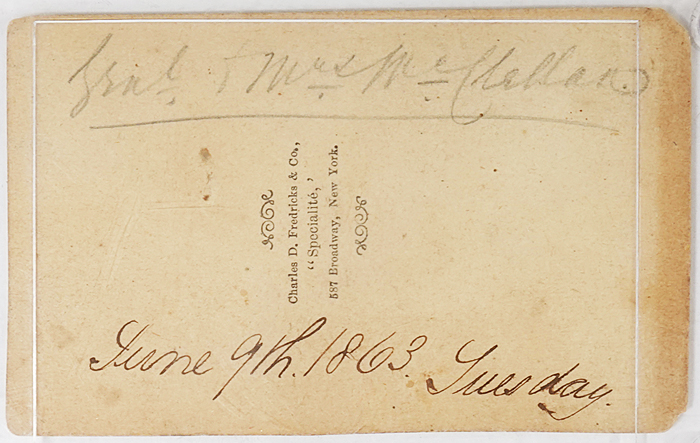 Genl. & Mrs. Mc Clellan
Charles D. Fredricks & Co.,
“Specialité,”
587 Broadway, New York.
June 9th. 1863. Tuesday.